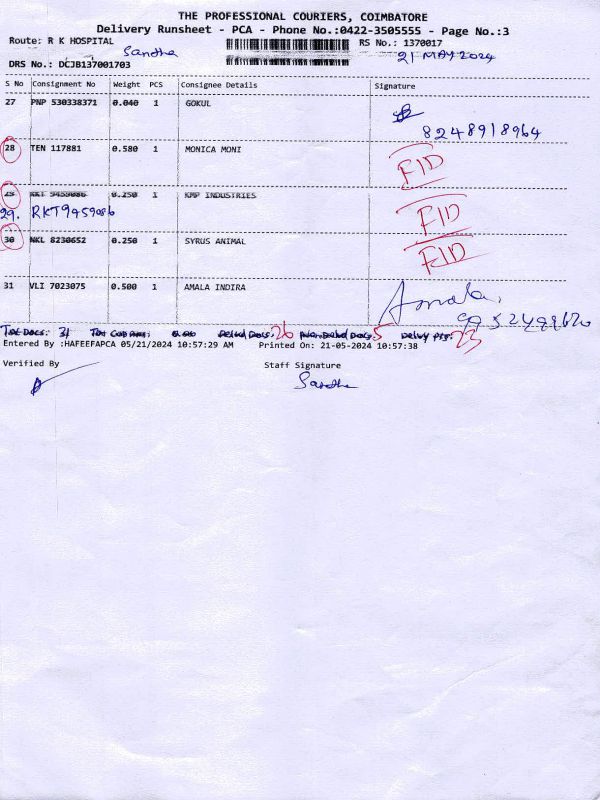 THE PROFESSIONAL COURIERS, COIMBATORE
Delivery Runsheet - PCA - Phone No.:0422-3505555 - Page No.:3
Route: R K HOSPITAL RS No.: 1370017
Sandha 21 MAY 2024
DRS No.: DCJB137001703
S No Consignment No Weight PCS Consignee Details Signature
27 PNP 530338371 0.040 1 GOKUL
8248918964
28 TEN 117881 0.580 1 MONICA MONI FID
29 RKT 9459086 0.250 1 KMP INDUSTRIES
29. RKT9459086 FID
30 NKL 8230652 0.250 1 SYRUS ANIMAL FID
31 VLI 7023075 0.500 1 AMALA INDIRA Amala.
Tot Docs: 31 0.00 26 5 23
Entered By :HAFEEFAPCA 05/21/2024 10:57:29 AM Printed On: 21-05-2024 10:57:38
Verified By Staff Signature
Sandha